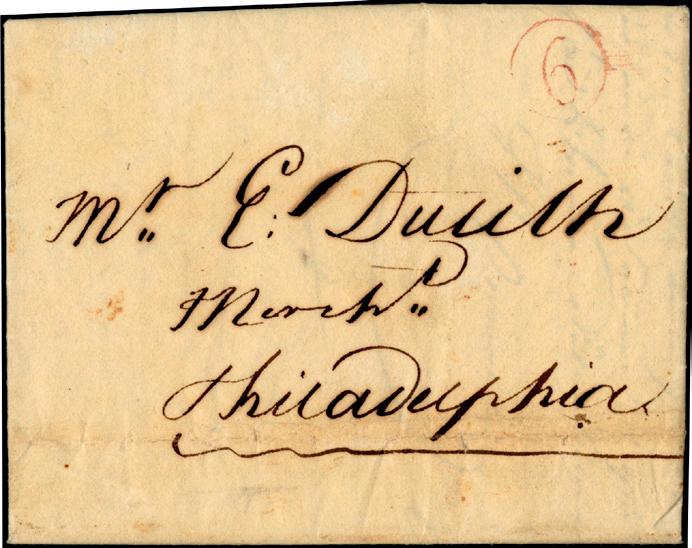 6
Mr. E. Dutilh
Mercht.
Philadelphia